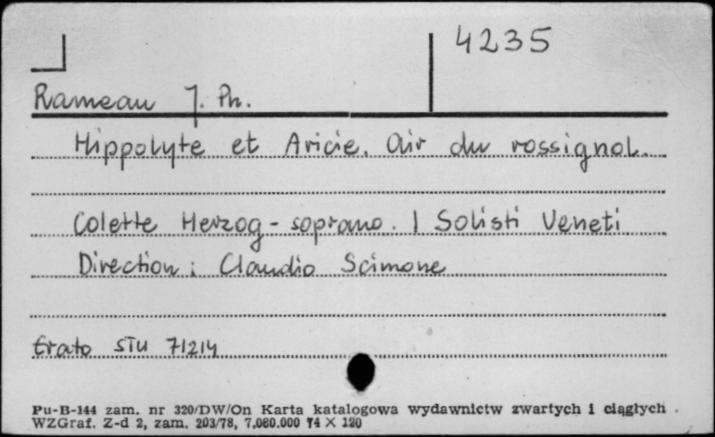 4235
Rameau J. Ph.
Hippolyte et Aricie. Air du rossignol.
Colette Herzog - soprano. I Solisti Veneti
Direction: Claudio Scimone
Erato STU 71214
Pu-B-144 zam. nr 320/DW/On Karta katalogowa wydawnictw zwartych i ciągłych .
WZGraf. Z-d 2, zam. 203/78, 7.080.000 74 X 120